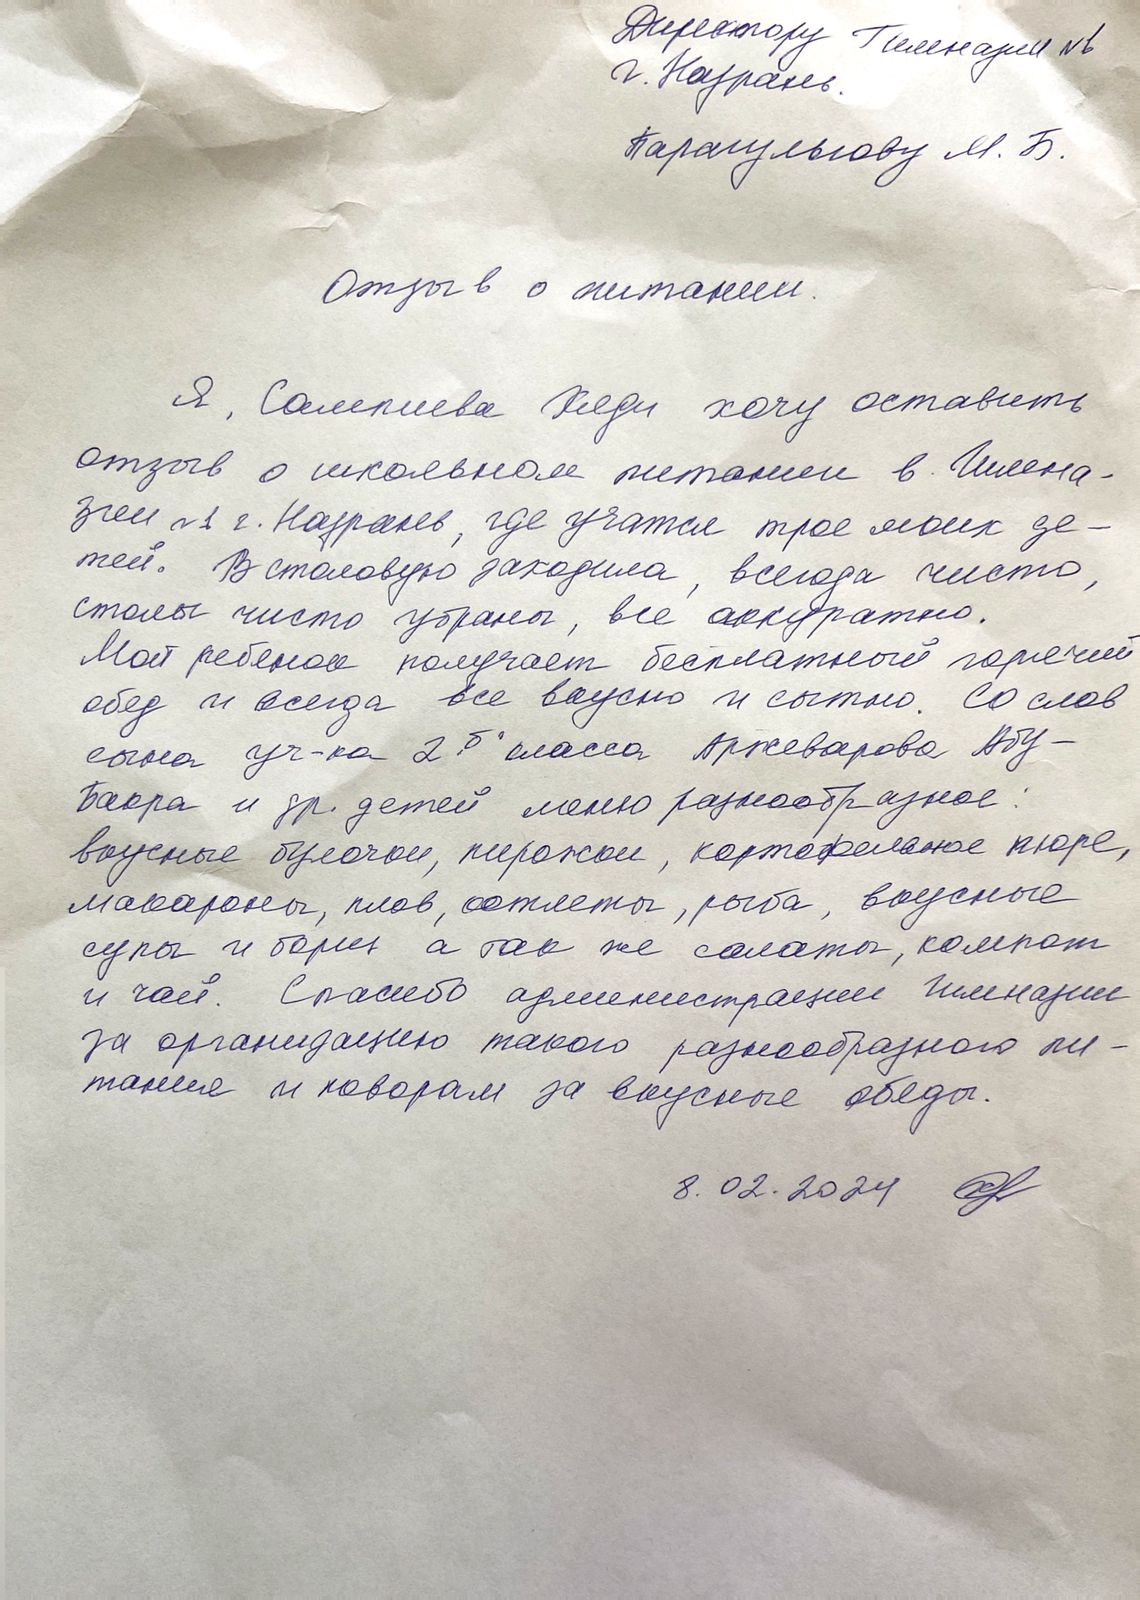 Директору Гимназии №1
г. Назрань.
Парагульгову М. Б.
Отзыв о питании.
Я, Сампиева Хяди хочу оставить
отзыв о школьном питании в Гимна-
зии №1 г. Назрань, где учатся трое моих де-
тей. В столовую заходила, всегда чисто,
столы чисто убраны, все аккуратно.
Мой ребенок получает бесплатный горячий
обед и всегда все вкусно и сытно. Со слов
сына уч-ка 2 "Б" класса Аржеварова Абу-
Бакра и др. детей меню разнообразное:
вкусные булочки, пирожки, картофельное пюре,
макароны, плов, котлеты, рыба, вкусные
супы и борщ а так же салаты, компот
и чай. Спасибо администрации Гимназии
за организацию такого разнообразного пи-
тания и поварам за вкусные обеды.
8.02.2024